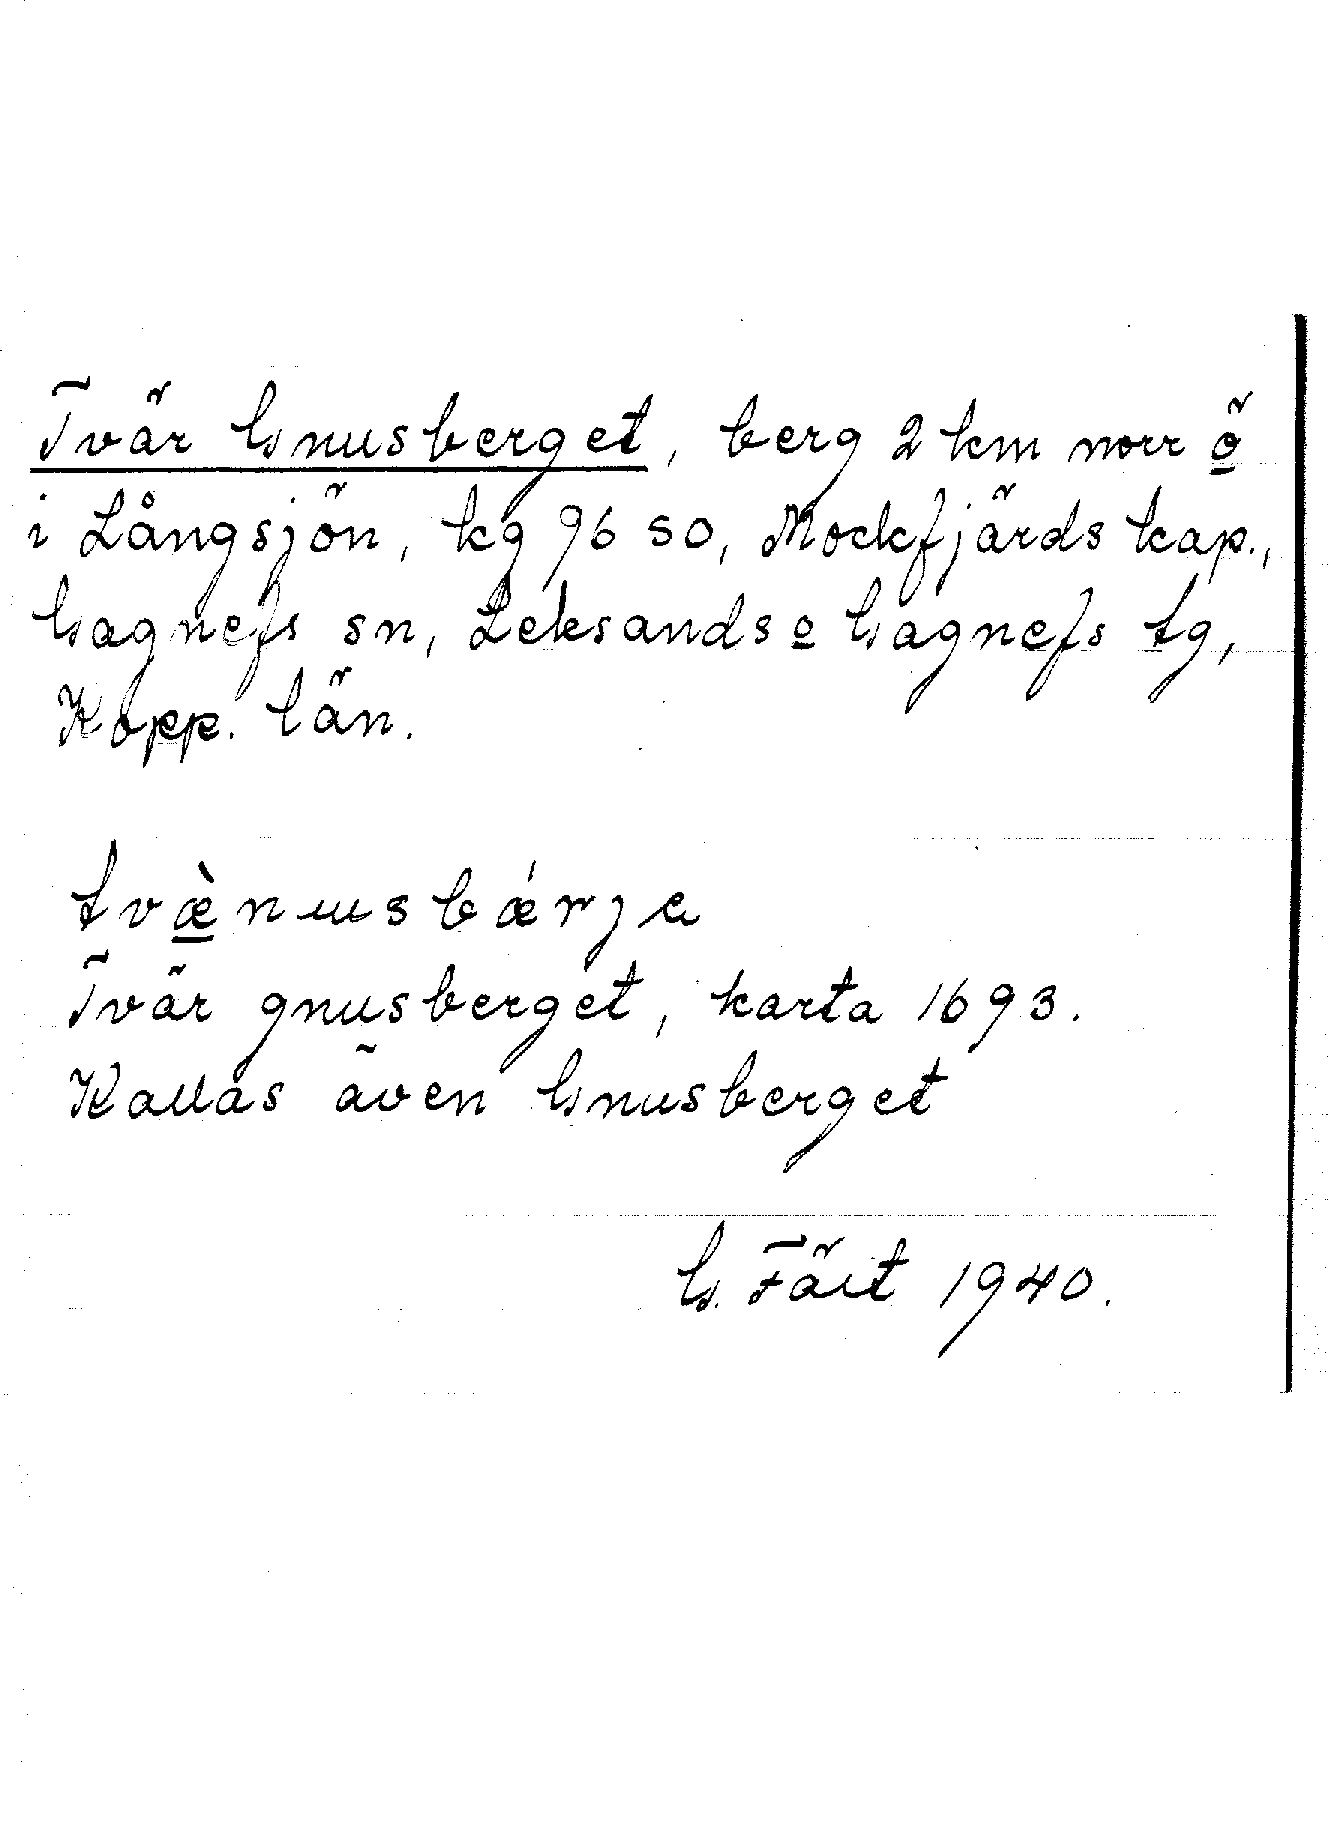 Tvär Gnusberget, berg 2 km norr ö
i Långsjön, kg 96 SO, Mockfjärds kap.,
Gagnefs sn, Leksands o Gagnefs tg,
Kopp. län.
tvæ̀nusbǽrjɐ
Tvär gnusberget, karta 1693.
Kallas även Gnusberget
G. Fält 1940.